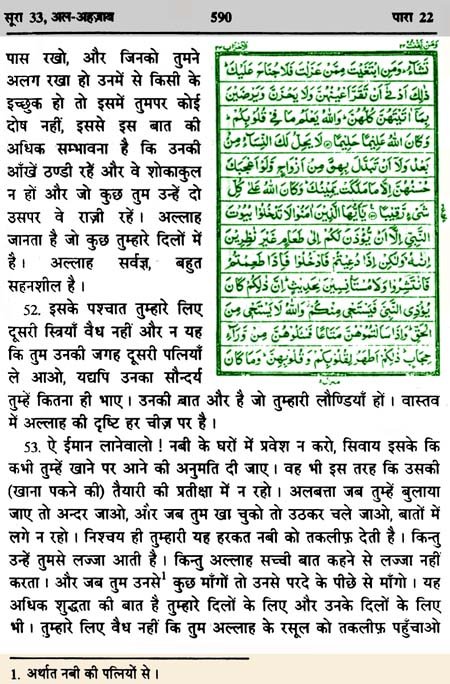 सूरा 33, अल-अहज़ाब 590 पारा 22
पास रखो, और जिनको तुमने
अलग रखा हो उनमें से किसी के
इच्छुक हो तो इसमें तुमपर कोई
दोष नहीं, इससे इस बात की
अधिक सम्भावना है कि उनकी
आँखें ठण्डी रहें और वे शोकाकुल
न हों और जो कुछ तुम उन्हें दो
उसपर वे राज़ी रहें। अल्लाह
जानता है जो कुछ तुम्हारे दिलों में
है। अल्लाह सर्वज्ञ, बहुत
सहनशील है।
52. इसके पश्चात तुम्हारे लिए
दूसरी स्त्रियाँ वैध नहीं और न यह
कि तुम उनकी जगह दूसरी पत्नियाँ
ले आओ, यद्यपि उनका सौन्दर्य
وَمَنْ يَقْنُتْ ٢٢
تَشَآءُ وَمَنِ ابْتَغَيْتَ مِمَّنْ عَزَلْتَ فَلَا جُنَاحَ عَلَيْكَ
ذٰلِكَ اَدْنٰٓى اَنْ تَقَرَّ اَعْيُنُهُنَّ وَلَا يَحْزَنَّ وَيَرْضَيْنَ
بِمَآ اٰتَيْتَهُنَّ كُلُّهُنَّ وَاللّٰهُ يَعْلَمُ مَا فِيْ قُلُوْبِكُمْ
وَكَانَ اللّٰهُ عَلِيْمًا حَلِيْمًا لَا يَحِلُّ لَكَ النِّسَآءُ مِنْ
بَعْدُ وَلَآ اَنْ تَبَدَّلَ بِهِنَّ مِنْ اَزْوَاجٍ وَّلَوْ اَعْجَبَكَ
حُسْنُهُنَّ اِلَّا مَا مَلَكَتْ يَمِيْنُكَ وَكَانَ اللّٰهُ عَلٰى كُلِّ
شَيْءٍ رَّقِيْبًا يٰٓاَيُّهَا الَّذِيْنَ اٰمَنُوْا لَا تَدْخُلُوْا بُيُوْتَ
النَّبِيِّ اِلَّآ اَنْ يُّؤْذَنَ لَكُمْ اِلٰى طَعَامٍ غَيْرَ نٰظِرِيْنَ
اِنٰىهُ وَلٰكِنْ اِذَا دُعِيْتُمْ فَادْخُلُوْا فَاِذَا طَعِمْتُمْ
فَانْتَشِرُوْا وَلَا مُسْتَاْنِسِيْنَ لِحَدِيْثٍ اِنَّ ذٰلِكُمْ كَانَ
يُؤْذِي النَّبِيَّ فَيَسْتَحْيٖ مِنْكُمْ وَاللّٰهُ لَا يَسْتَحْيٖ مِنَ
الْحَقِّ وَاِذَا سَاَلْتُمُوْهُنَّ مَتَاعًا فَسْـَٔلُوْهُنَّ مِنْ وَّرَآءِ
حِجَابٍ ذٰلِكُمْ اَطْهَرُ لِقُلُوْبِكُمْ وَقُلُوْبِهِنَّ وَمَا كَانَ
तुम्हें कितना ही भाए। उनकी बात और है जो तुम्हारी लौण्डियाँ हों। वास्तव
में अल्लाह की दृष्टि हर चीज़ पर है।
53. ऐ ईमान लानेवालो! नबी के घरों में प्रवेश न करो, सिवाय इसके कि
कभी तुम्हें खाने पर आने की अनुमति दी जाए। वह भी इस तरह कि उसकी
(खाना पकने की) तैयारी की प्रतीक्षा में न रहो। अलबत्ता जब तुम्हें बुलाया
जाए तो अन्दर जाओ, और जब तुम खा चुको तो उठकर चले जाओ, बातों में
लगे न रहो। निश्चय ही तुम्हारी यह हरकत नबी को तकलीफ़ देती है। किन्तु
उन्हें तुमसे लज्जा आती है। किन्तु अल्लाह सच्ची बात कहने से लज्जा नहीं
करता। और जब तुम उनसे¹ कुछ माँगों तो उनसे परदे के पीछे से माँगो। यह
अधिक शुद्धता की बात है तुम्हारे दिलों के लिए और उनके दिलों के लिए
भी। तुम्हारे लिए वैध नहीं कि तुम अल्लाह के रसूल को तकलीफ़ पहुँचाओ
1. अर्थात नबी की पत्नियों से।